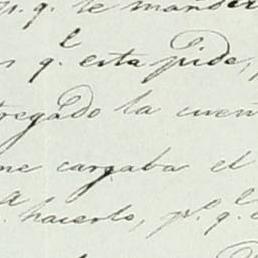 p.q. le mander
q.e esta pide,
tregado la cuen
me cargaba el
hacerlo, p.o q.e